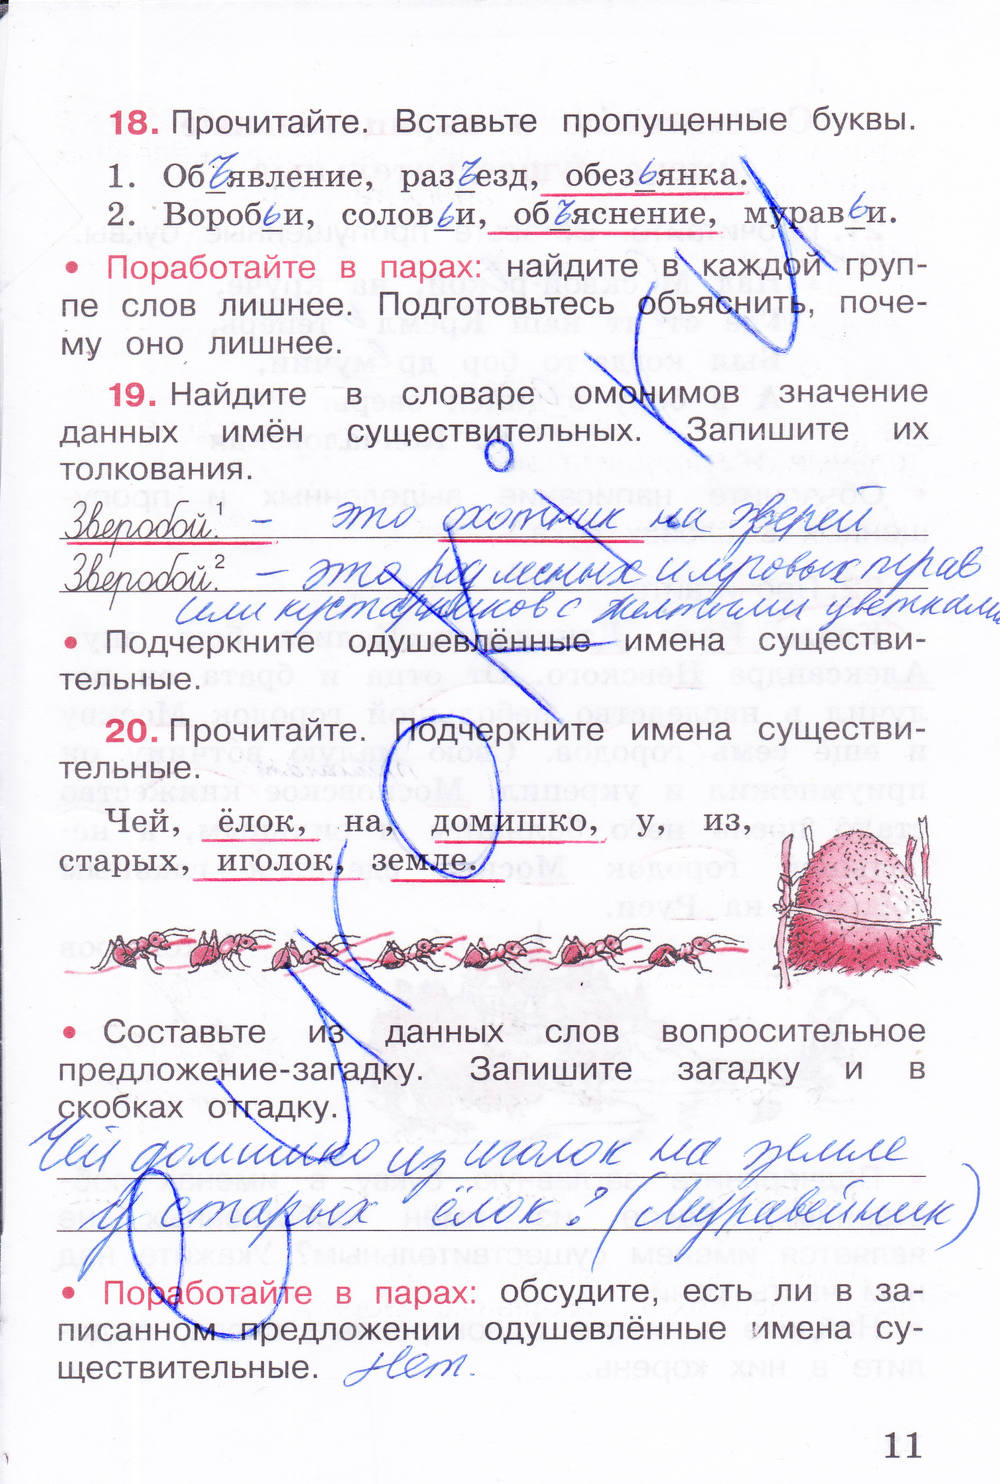 18. Прочитайте. Вставьте пропущенные буквы.
1. Объявление, разъезд, обезьянка.
2. Воробьи, соловьи, объяснение, муравьи.
• Поработайте в парах: найдите в каждой груп-
пе слов лишнее. Подготовьтесь объяснить, поче-
му оно лишнее.
19. Найдите в словаре омонимов значение
данных имён существительных. Запишите их
толкования.
Зверобой.¹ – это охотник на зверей
Зверобой.² – это род лесных и луговых трав
или кустарников с желтыми цветками
• Подчеркните одушевлённые имена существи-
тельные.
20. Прочитайте. Подчеркните имена существи-
тельные.
Чей, ёлок, на, домишко, у, из,
старых, иголок, земле.
• Составьте из данных слов вопросительное
предложение-загадку. Запишите загадку и в
скобках отгадку.
Чей домишко из иголок на земле
у старых ёлок? (Муравейник)
• Поработайте в парах: обсудите, есть ли в за-
писанном предложении одушевлённые имена су-
ществительные. Нет.
11